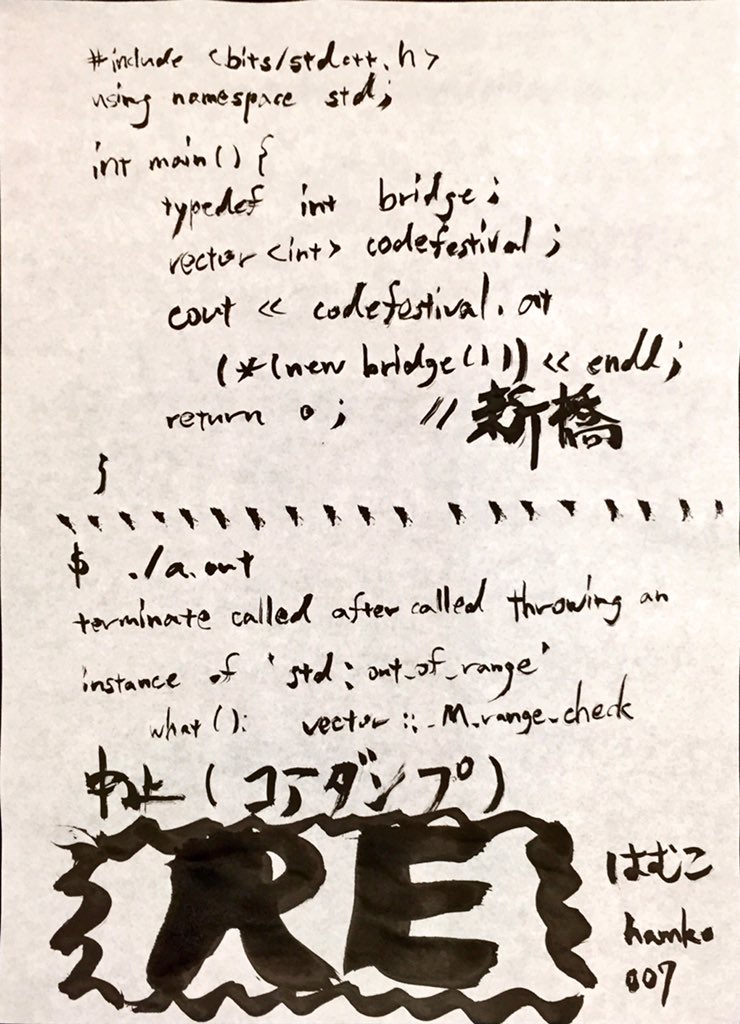 #include <bits/stdc++.h>
using namespace std;
int main() {
typedef int bridge;
vector<int> codefestival;
cout << codefestival.at
(*(new bridge())) << endl;
return 0; // 新橋
}
$ ./a.out
terminate called after called throwing an
instance of 'std::out_of_range'
what(): vector::_M_range_check
中止 (コアダンプ)
RE
はむこ
hamko
007